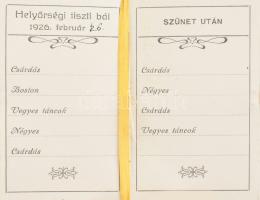 Helyőrségi tiszti bál
1926. február 26.
Csárdás
Boston
Vegyes táncok
Négyes
Csárdás
SZÜNET UTÁN
Csárdás
Négyes
Csárdás
Vegyes táncok